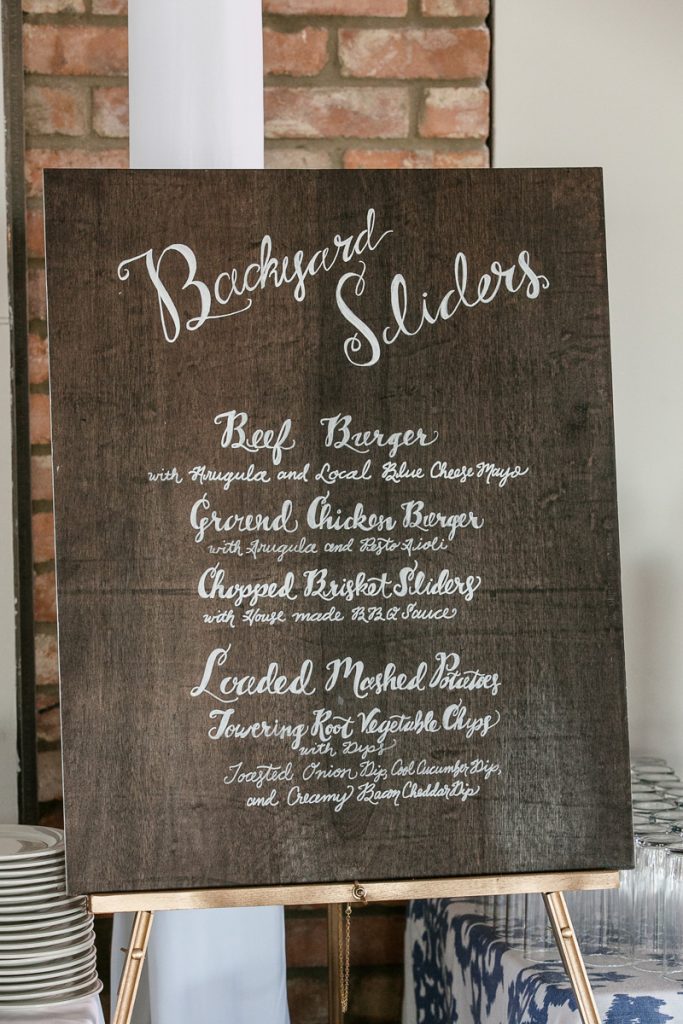 Backyard
Sliders
Beef Burger
with Arugula and Local Blue Cheese Mayo
Ground Chicken Burger
with Arugula and Pesto Aioli
Chopped Brisket Sliders
with House made BBQ Sauce
Loaded Mashed Potatoes
Towering Root Vegetable Chips
with Dips
Toasted Onion Dip, Cool Cucumber Dip,
and Creamy Bacon Cheddar Dip